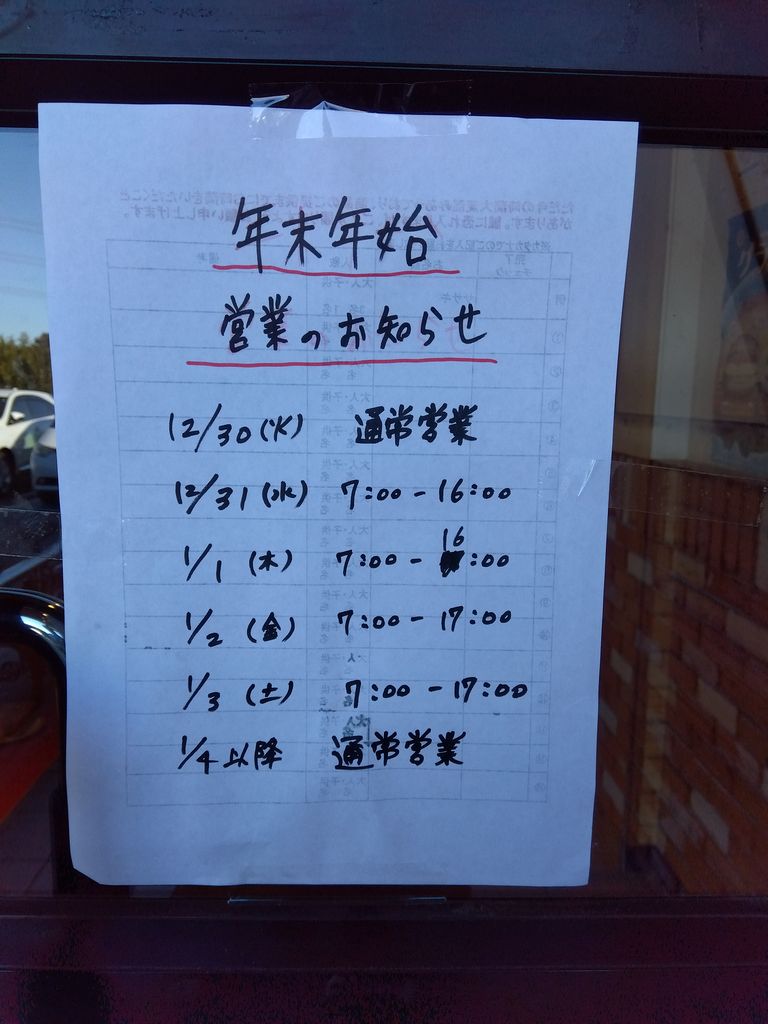 年末年始
営業のお知らせ
12/30(火) 通常営業
12/31(水) 7:00-16:00
1/1(木) 7:00-16:00
1/2(金) 7:00-17:00
1/3(土) 7:00-17:00
1/4以降 通常営業